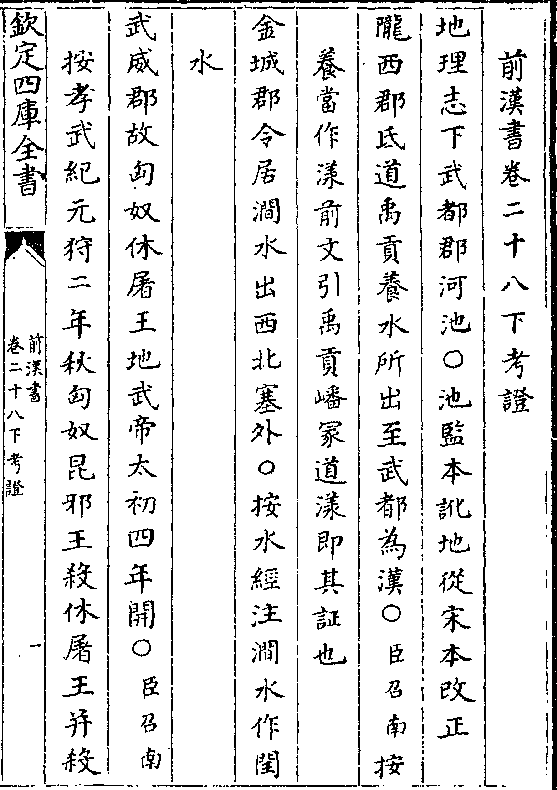 前漢書卷二十八下考證
地理志下武都郡河池○池監本訛地從宋本改正
隴西郡氐道禹貢養水所出至武都為漢○臣召南按
養當作漾前文引禹貢嶓冢道漾即其証也
金城郡令居澗水出西北塞外○按水經注澗水作閏
水
武威郡故匈奴休屠王地武帝太初四年開○臣召南
按孝武紀元狩二年秋匈奴昆邪王殺休屠王并殺
欽定四庫全書
前漢書
卷二十八下考證
一